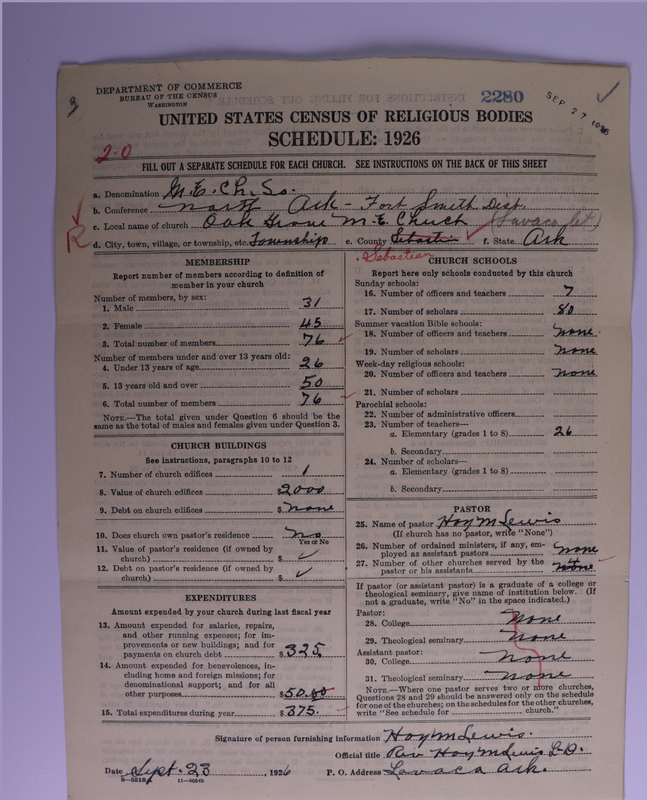 DEPARTMENT OF COMMERCE
BUREAU OF THE CENSUS
WASHINGTON
2280
SEP 27 1926
UNITED STATES CENSUS OF RELIGIOUS BODIES
SCHEDULE: 1926
2-0
FILL OUT A SEPARATE SCHEDULE FOR EACH CHURCH. SEE INSTRUCTIONS ON THE BACK OF THIS SHEET
a. Denomination M. E. Ch. So.
b. Conference North Ark - Fort Smith Dist.
c. Local name of church Oak Grove M. E. Church (Lavaca Ct)
R
d. City, town, village, or township, etc. Township e. County Sebasti f. State Ark
Sebastian
MEMBERSHIP
Report number of members according to definition of
member in your church
Number of members, by sex:
1. Male 31
2. Female 45
3. Total number of members 76
Number of members under and over 13 years old:
4. Under 13 years of age 26
5. 13 years old and over 50
6. Total number of members 76
NOTE.—The total given under Question 6 should be
same as the total of males and females given under Question 3.
CHURCH BUILDINGS
See instructions, paragraphs 10 to 12
7. Number of church edifices 1
8. Value of church edifices $2000
9. Debt on church edifices $ none
10. Does church own pastor's residence no
Yes or No
11. Value of pastor's residence (if owned by
church) $ ✓
12. Debt on pastor's residence (if owned by
church) $ ✓
EXPENDITURES
Amount expended by your church during last fiscal year
13. Amount expended for salaries, repairs,
and other running expenses; for im-
provements or new buildings; and for
payments on church debt $325.
14. Amount expended for benevolences, in-
cluding home and foreign missions; for
denominational support; and for all
other purposes $50.00
15. Total expenditures during year $375.
CHURCH SCHOOLS
Report here only schools conducted by this church
Sunday schools:
16. Number of officers and teachers 7
17. Number of scholars 80
Summer vacation Bible schools:
18. Number of officers and teachers none.
19. Number of scholars none
Week-day religious schools:
20. Number of officers and teachers none
21. Number of scholars
Parochial schools:
22. Number of administrative officers
23. Number of teachers—
a. Elementary (grades 1 to 8) 26
b. Secondary
24. Number of scholars—
a. Elementary (grades 1 to 8)
b. Secondary
PASTOR
25. Name of pastor Hoy M Lewis
(If church has no pastor, write "None")
26. Number of ordained ministers, if any, em-
ployed as assistant pastors none
27. Number of other churches served by the
pastor or his assistants
If pastor (or assistant pastor) is a graduate of a college or
theological seminary, give name of institution below. (If
not a graduate, write "No" in the space indicated.)
Pastor:
28. College none
29. Theological seminary none
Assistant pastor:
30. College none
31. Theological seminary none
NOTE.—Where one pastor serves two or more churches,
Questions 28 and 29 should be answered only on the schedule
for one of the churches; on the schedules for the other churches,
write "See schedule for church."
Signature of person furnishing information Hoy M Lewis.
Official title Rev Hoy M Lewis
Date Sept. 23, 1926 P. O. Address Lavaca Ark.
8-5518 11-9554b